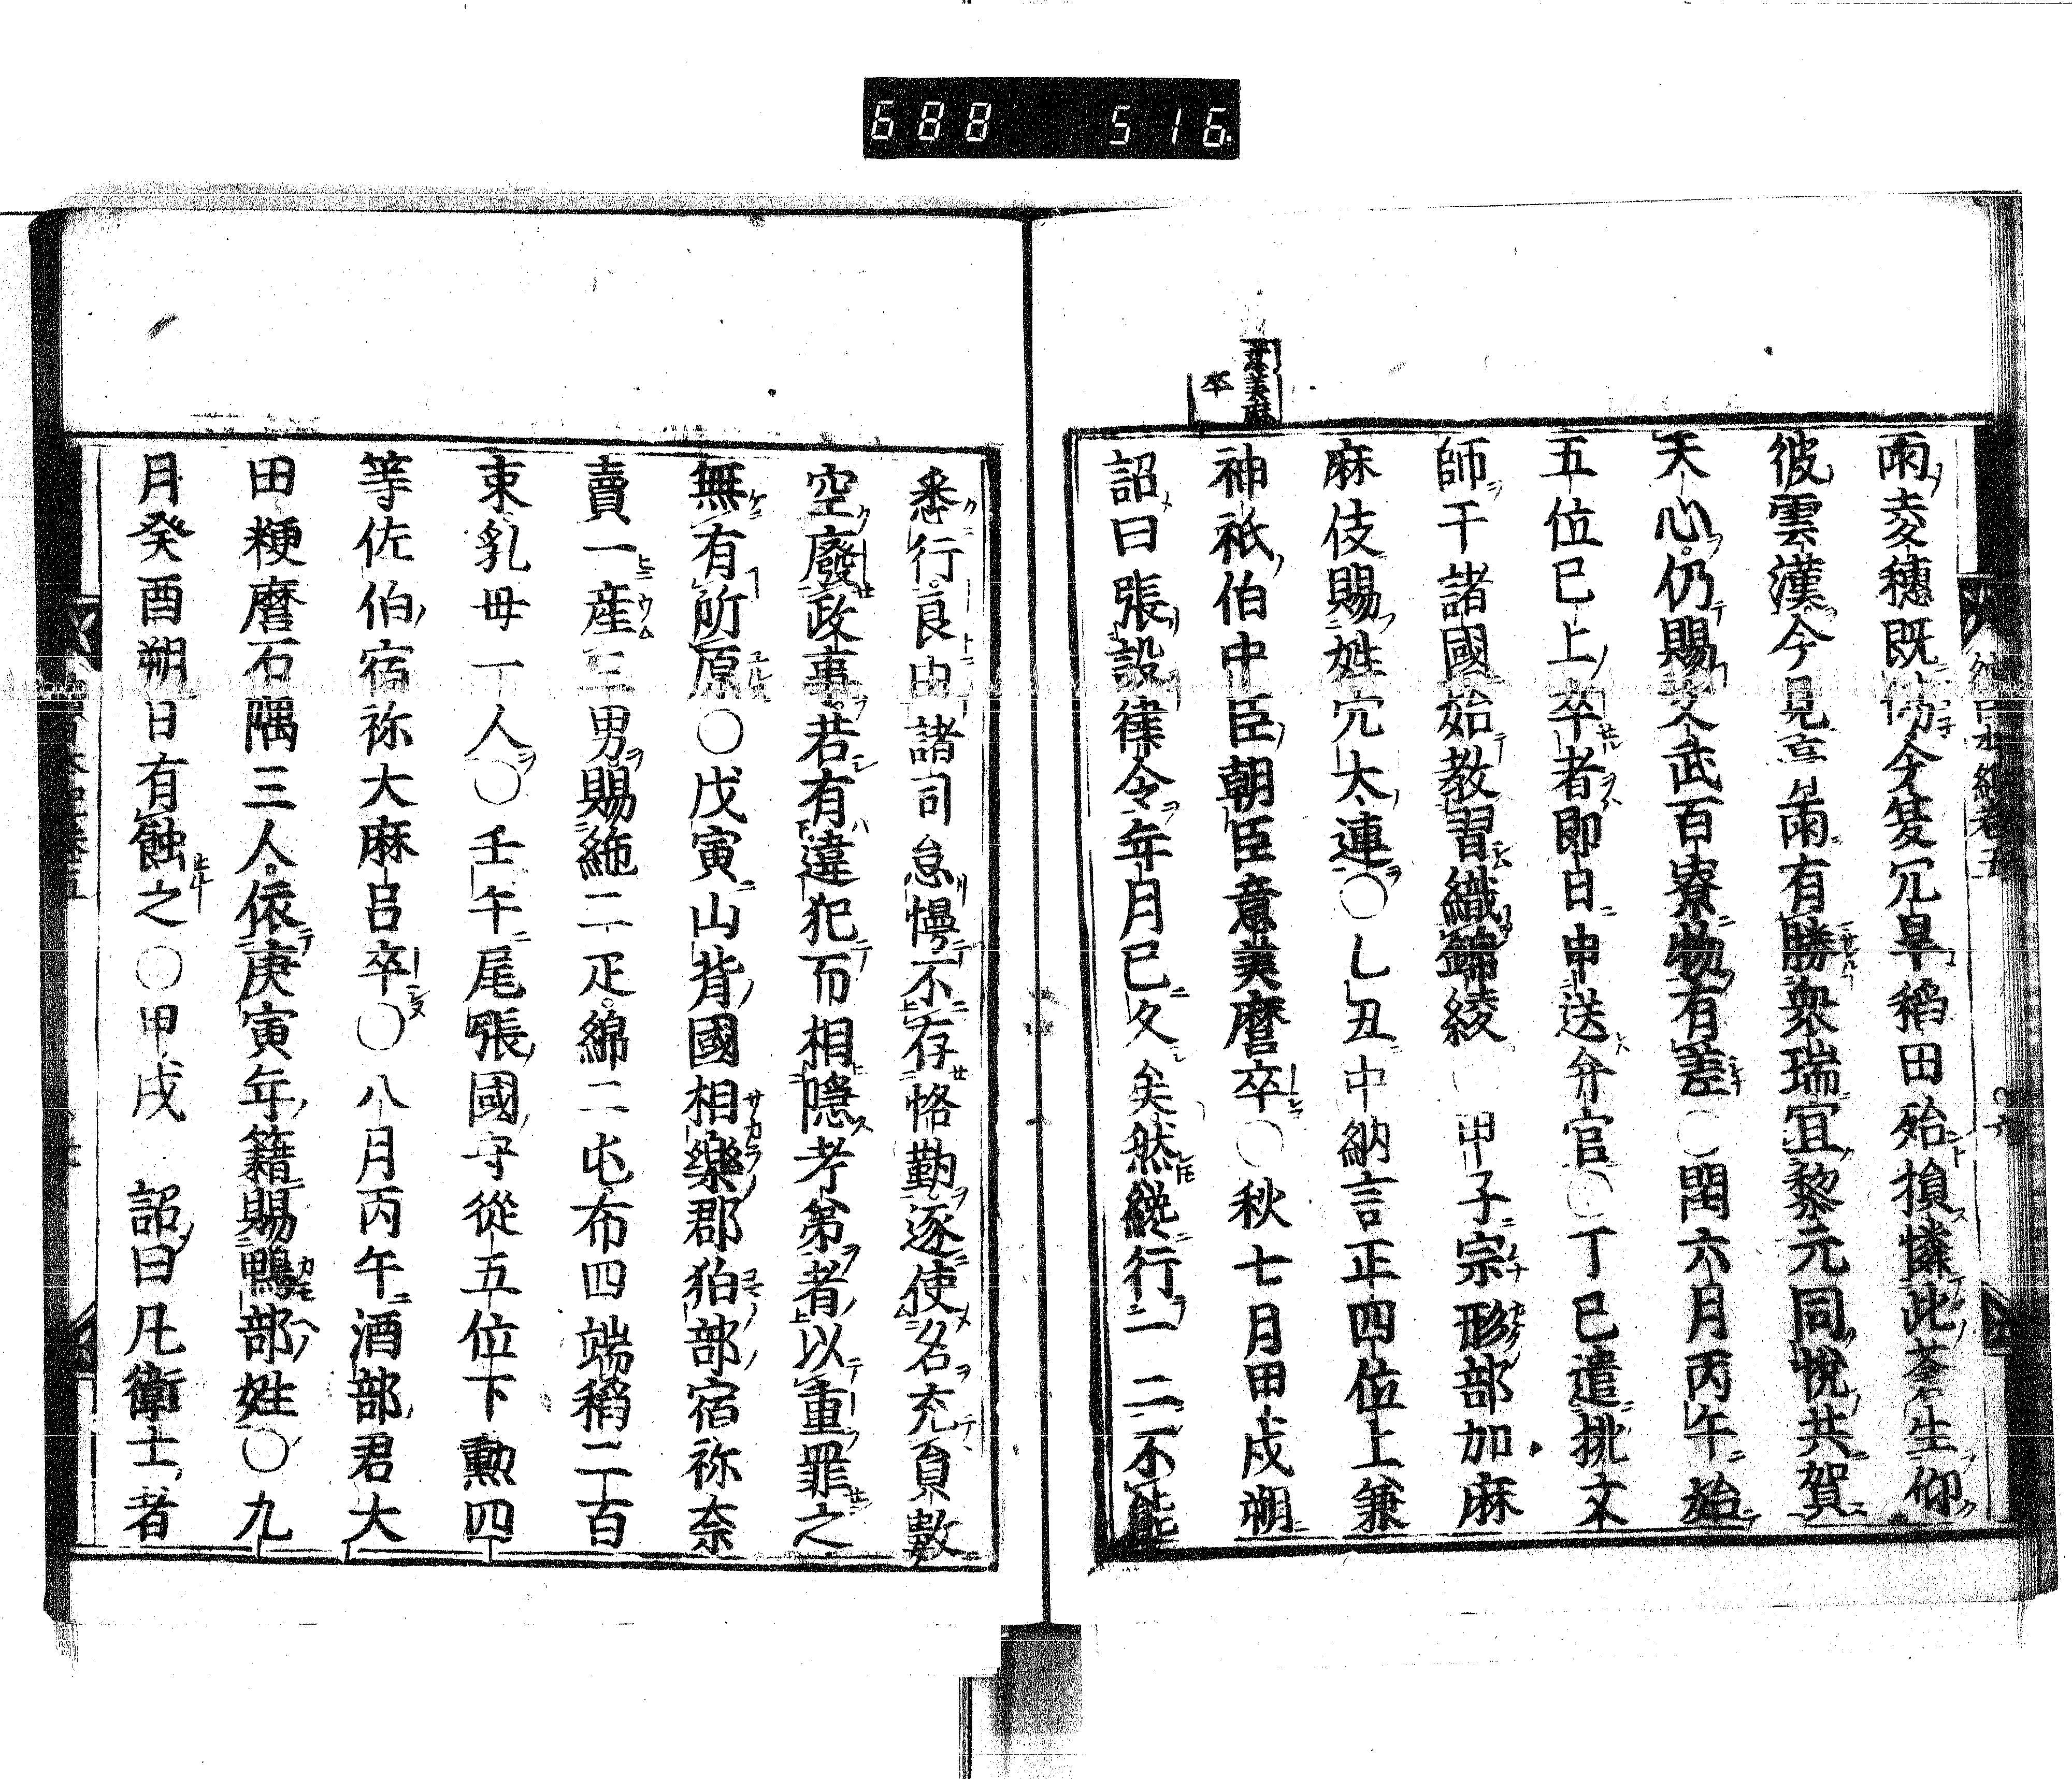 688 516
意美麻
卒
雨麦穗既傷今芟冗旱稻田殆損憐此蒼生仰
彼雲漢今見亢雨有勝衆瑞宜黎元同悅共賀
天心仍賜文武百寮物有差〇閏六月丙午始
五位已上卒者即日申送弁官〇丁巳遣挑文
師于諸國始教習織錦綾〇甲子宗形部加麻
麻伎賜姓穴太連〇乙丑中納言正四位上兼
神祇伯中臣朝臣意美麿卒〇秋七月甲戌朔
詔曰張設律令年月已久矣然纔行一二不能
悉行良由諸司怠慢不存恪勤遂使名充員數
空廢政事若有違犯而相隱考第者以重罪之
無有所原〇戊寅山背國相樂郡狛部宿祢奈
賣一產三男賜絁二疋綿二屯布四端稻二百
束乳母一人〇壬午尾張國守從五位下勲四
等佐伯宿祢大麻呂卒〇八月丙午酒部君大
田粳麿石隅三人依庚寅年籍賜鴨部姓〇九
月癸酉朔日有蝕之〇甲戌詔曰凡衛士者